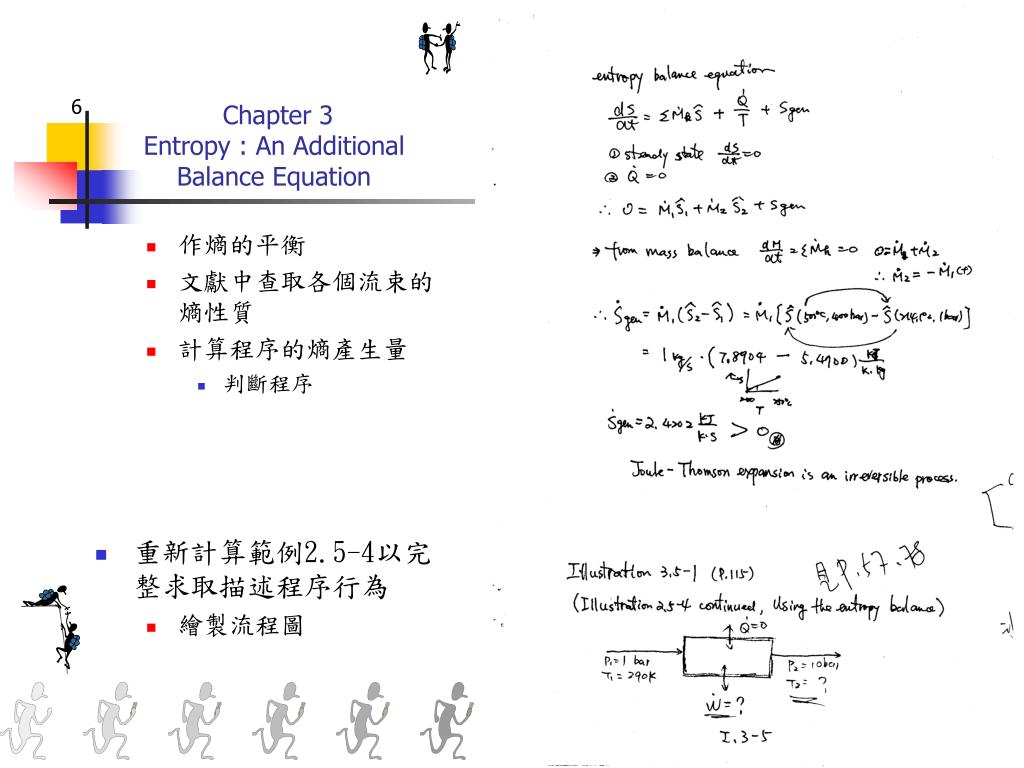 6
Chapter 3
Entropy : An Additional
Balance Equation
作熵的平衡
文獻中查取各個流束的
熵性質
計算程序的熵產生量
判斷程序
重新計算範例2.5-4以完
整求取描述程序行為
繪製流程圖
entropy balance equation
dS/dt = ΣṀk Ŝ + Q̇/T + Sgen
① steady state dS/dt = 0
② Q̇ = 0
∴ 0 = Ṁ1Ŝ1 + Ṁ2Ŝ2 + Sgen
→ from mass balance dM/dt = ΣṀk = 0 0 = Ṁ1 + Ṁ2
∴ Ṁ2 = -Ṁ1
∴ Ṡgen = Ṁ1(Ŝ2 - Ŝ1) = Ṁ1[Ŝ( , 1bar)]
= 1 kg/s · (7.8904 - 5.4700) kJ/K·kg
T
Ṡgen = 2.4202 kJ/K·S > 0
Joule-Thomson expansion is an irreversible process.
見P.57.78
Illustration 3.5-1 (P.115)
(Illustration 2.5-4 continued, Using the entropy balance)
Q̇=0
P1=1 bar
T1=290K
P2=10bar
T2= ?
Ẇ=?
I.3-5